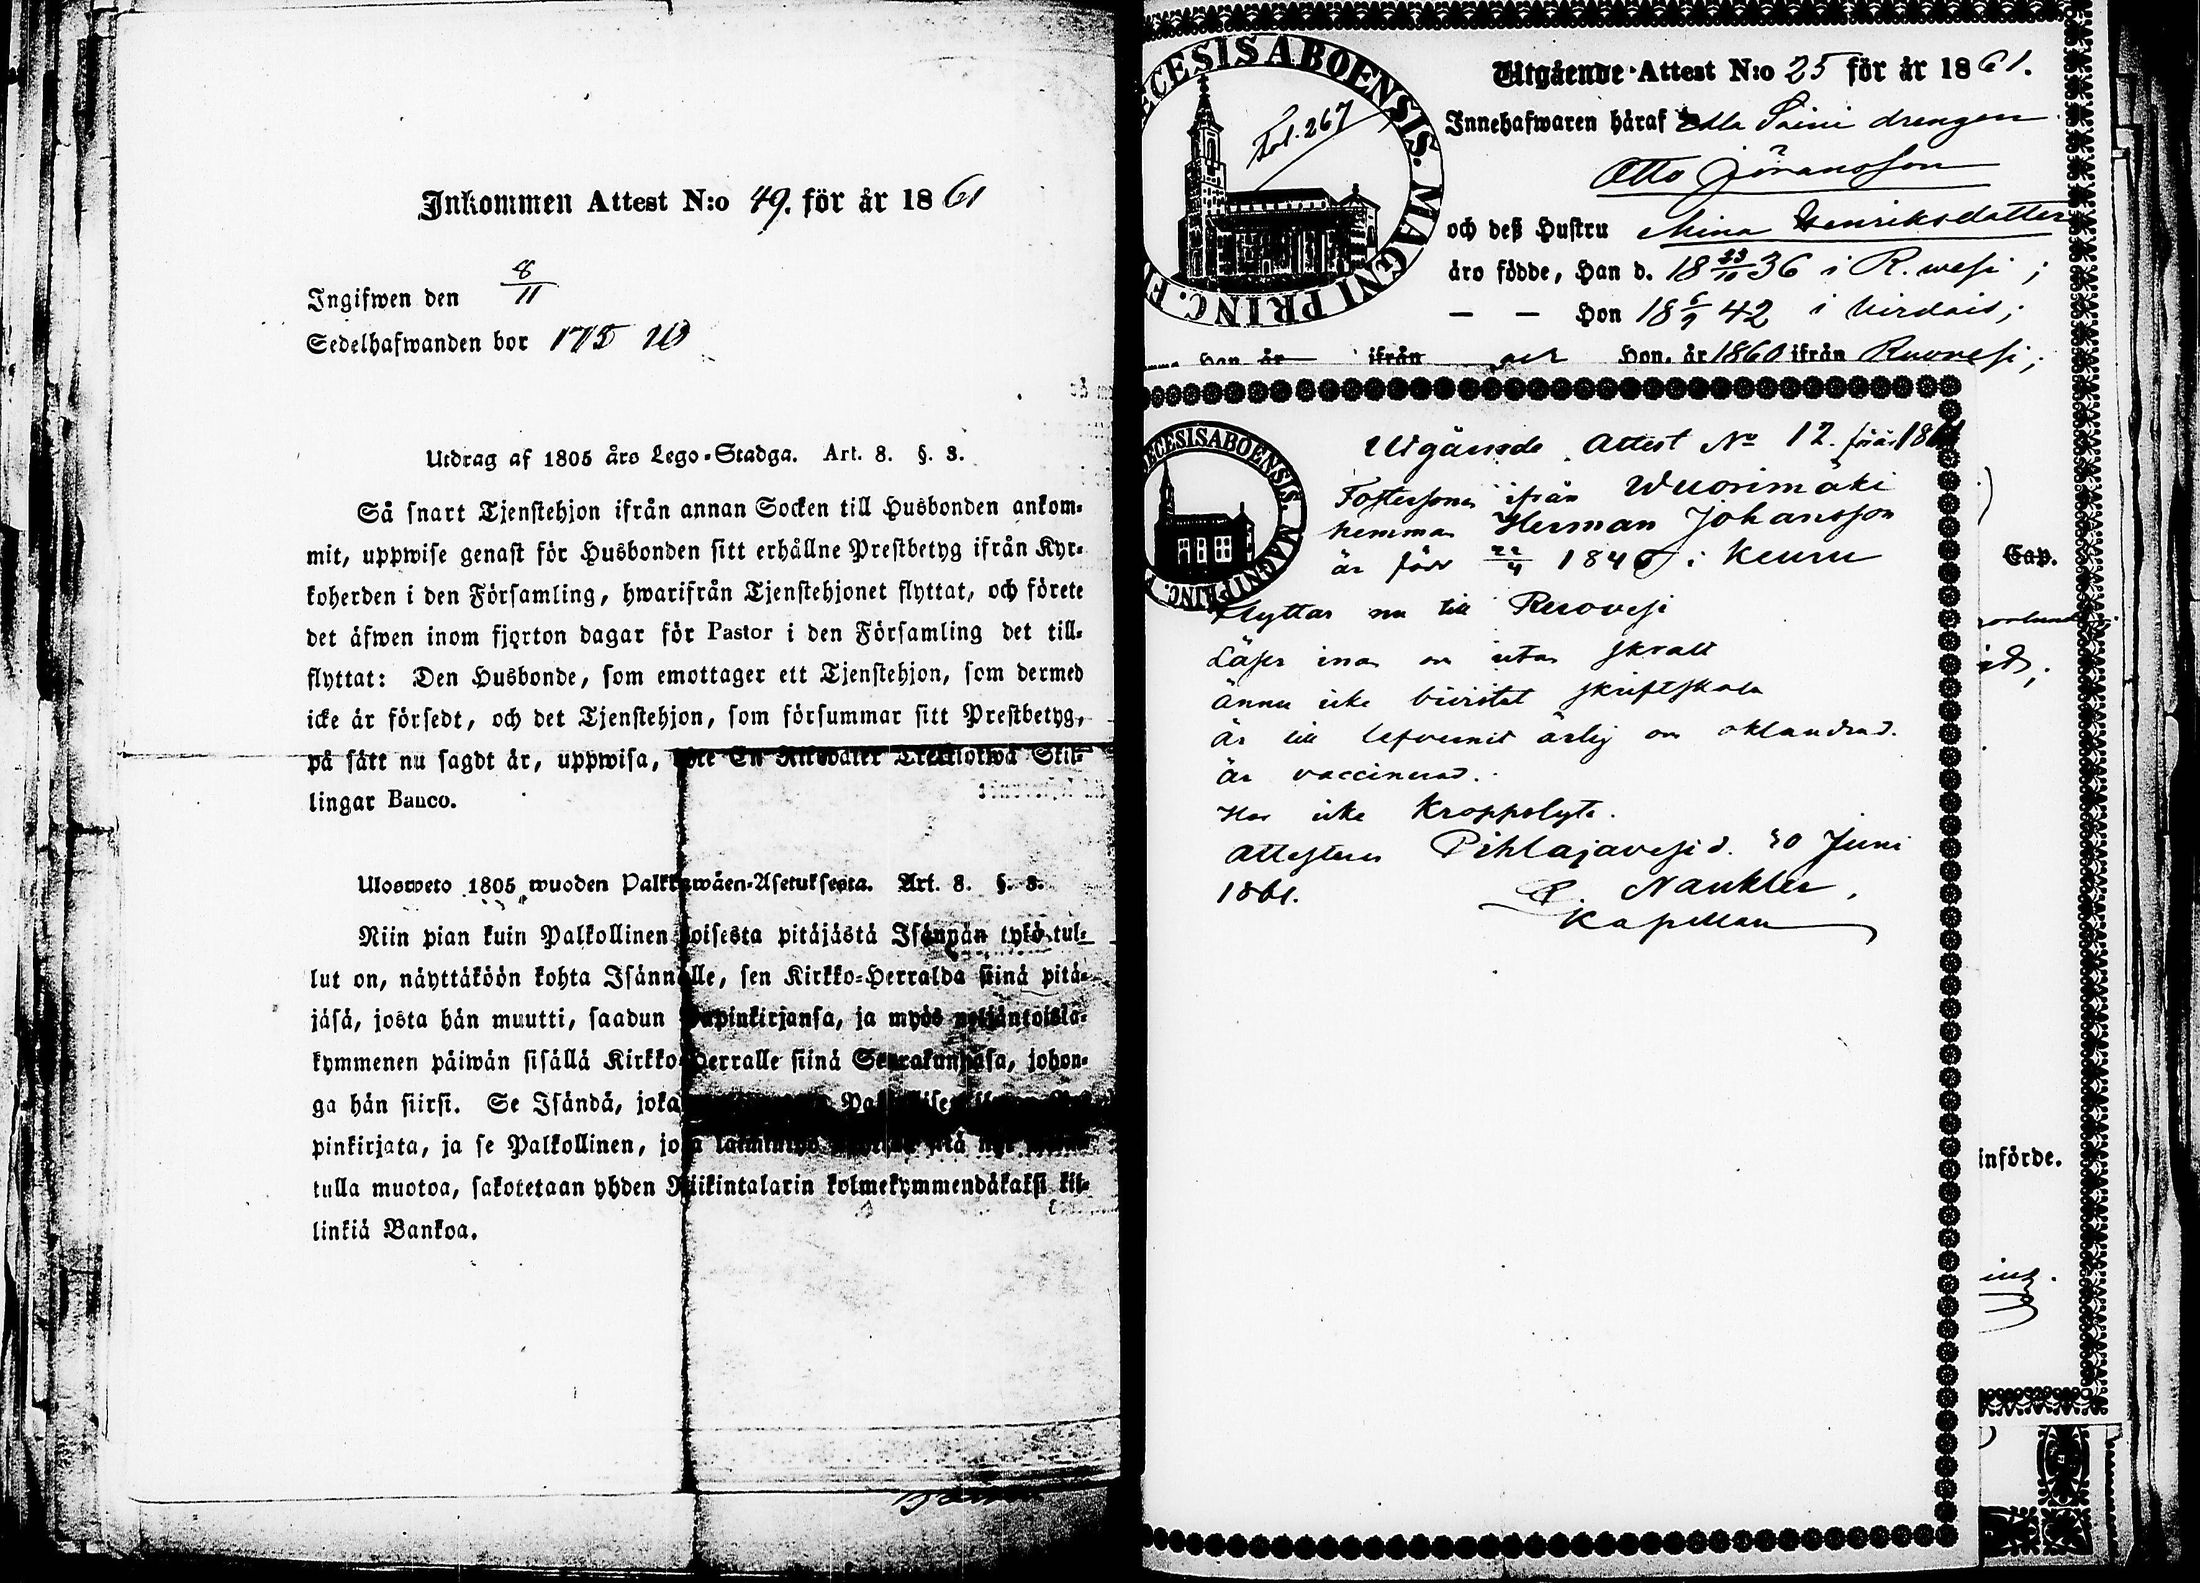 Inkommen Attest N:o 49. för år 1861
Ingifwen den 8/11
Sedelhafwanden bor 175
Utdrag af 1805 års Lego-Stadga. Art. 8. §. 3.
Så snart Tjenstehjon ifrån annan Socken till Husbonden ankom-
mit, uppwise genast för Husbonden sitt erhållne Prestbetyg ifrån Kyr-
koherden i den Församling, hwarifrån Tjenstehjonet flyttat, och förete
det äfwen inom fjorton dagar för Pastor i den Församling det till-
flyttat: Den Husbonde, som emottager ett Tjenstehjon, som dermed
icke är försedt, och det Tjenstehjon, som försummar sitt Prestbetyg,
på sätt nu sagdt är, uppwisa, böte En Riksdaler Trettiotwå Skil-
lingar Banco.
Ulosweto 1805 wuoden Palkkawäen-Asetuksesta. Art. 8. §. 3.
Niin pian kuin Palkollinen toisesta pitäjästä Isännän tykö tul-
lut on, näyttäköön kohta Isännälle, sen Kirkko-Herralda siinä pitä-
jäsä, josta hän muutti, saadun Papinkirjansa, ja myös neljäntoista-
kymmenen päiwän sisällä Kirkko-Herralle siinä Seurakunnasa, johon-
ga hän siirsi. Se Isändä, joka
pinkirjata, ja se Palkollinen, joka
tulla muotoa, sakotetaan yhden Riikintalarin kolmekymmendäkaksi kil-
linkiä Bankoa.
DIOECESIS ABOENSIS. MAGNI PRINC. F
Fol. 267
Utgående Attest N:o 25 för år 1861.
Innehafwaren häraf drengen
Otto Jöransson
och deß Hustru Mina Henriksdotter
äro födde, Han d. 18 23/10 36 i R. wesi;
— — Hon 18 6/9 42 i Virdois;
Han år ifrån och Hon, år 1860 ifrån Ruovesi;
DIOECESIS ABOENSIS. MAGNI PRINC. F
Utgående Attest No 12. för år 1861
Fostersonen ifrån Wuorimäki
hemman Herman Johansson
är född 22/4 1840 i Keuru
flyttar nu till Ruovesi
Läser innan och utan skralt
ännu icke bivistat skriftskola
är till lefvernet ärlig och oklandrad.
är vaccinerad.
Har icke Kroppslyte.
attesterar Pihlajavesi d. 30 Juni
1861. Nankler,
Kapellan
Cap.
införde.